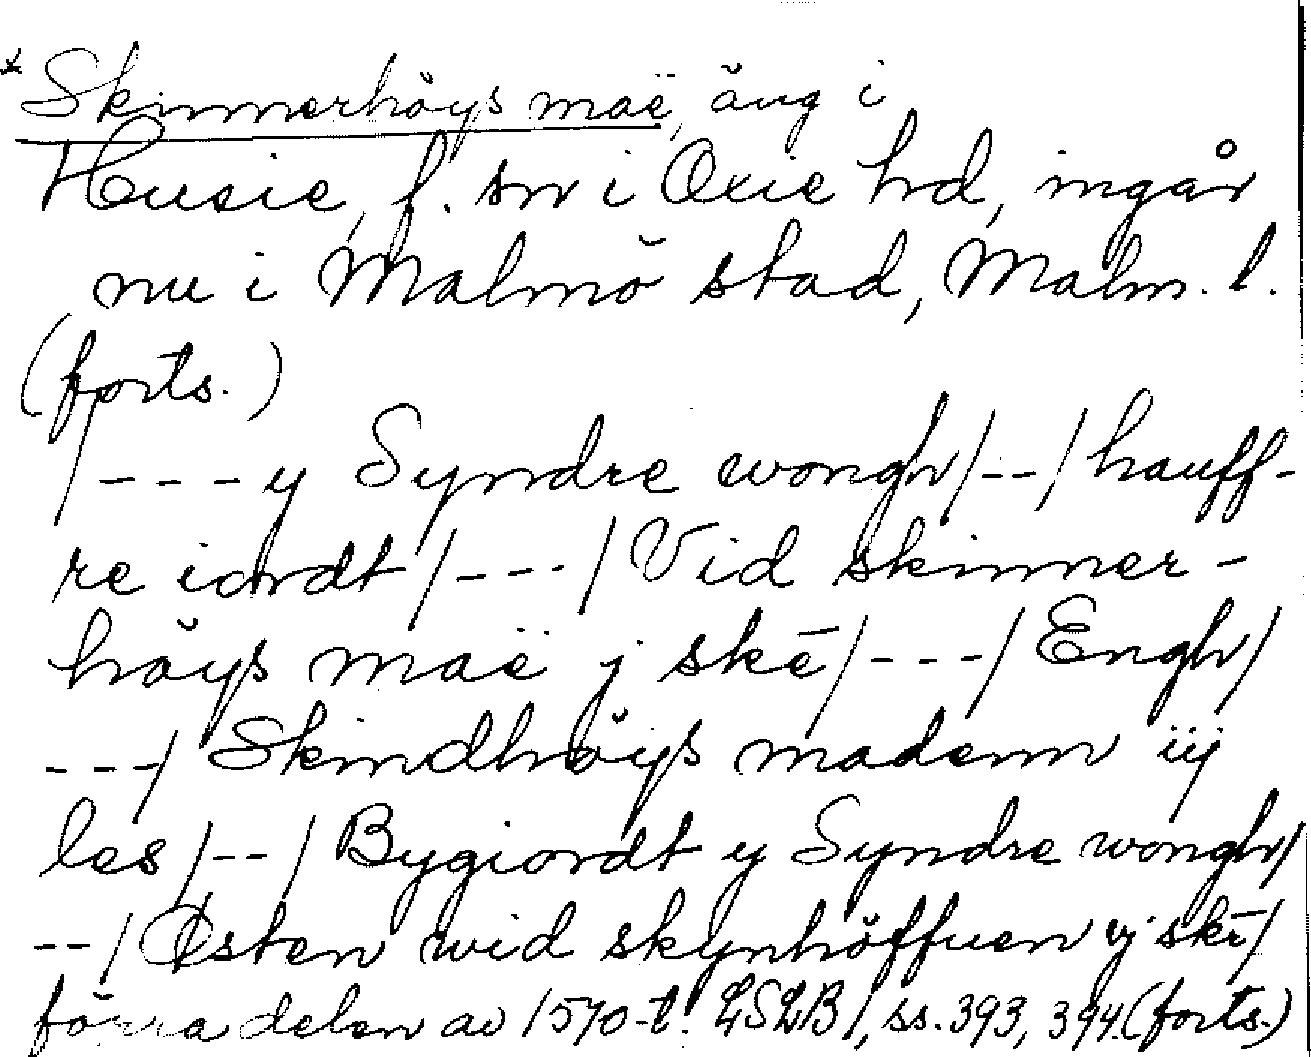 * Skinnerhöys maë, äng i
Husie, f. sn i Oxie hd, ingår
nu i Malmö stad, Malm. l.
(forts.)
/ - - - - y Syndre wongh/ - - / hauff-
re iordt / - - - / Vid skinner-
höys maë j skē / - - - / Engh/
- - - / Skindhöys madenn iij
les / - - / Bygiordt y Syndre wongh/
- - / Østen wid skynhöffuen ij skē /
förra delen av 1570-t. LSLB 1, ss. 393, 394. (forts.)